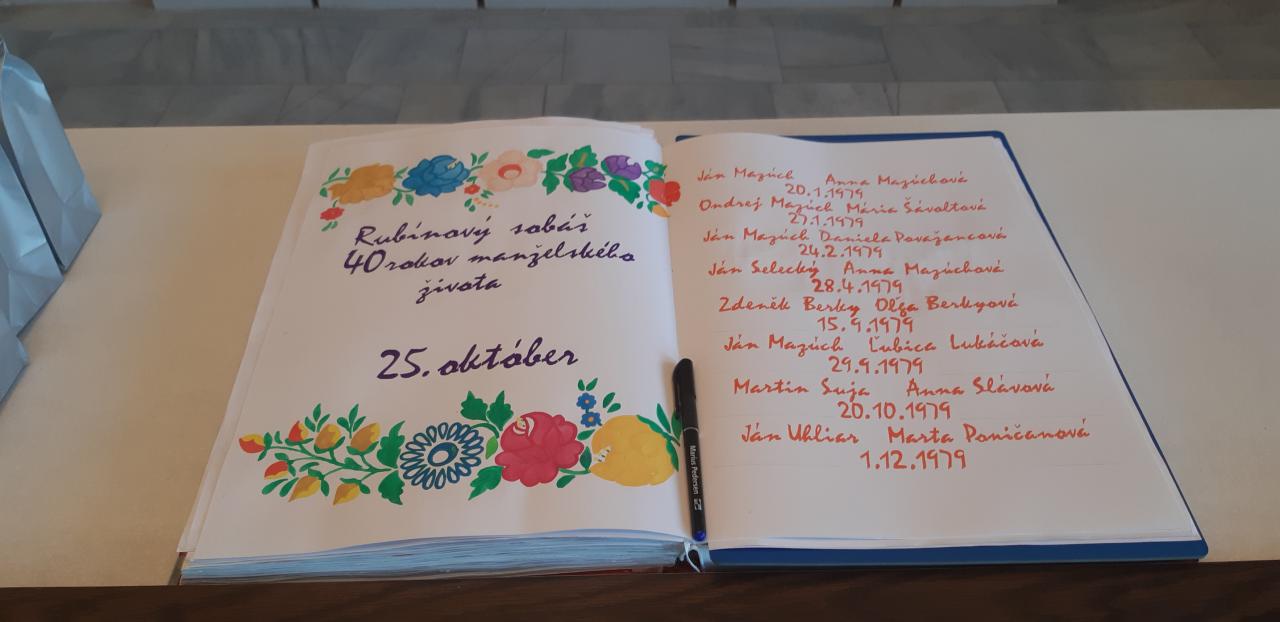 Rubínový sobáš
40 rokov manželského
života
25. október
Ján Mazúch Anna Mazúchová
20.1.1979
Ondrej Mazúch Mária Šávoltová
27.1.1979
Ján Mazúch Daniela Považancová
24.2.1979
Ján Selecký Anna Mazúchová
28.4.1979
Zdeněk Berky Oľga Berkyová
15.9.1979
Ján Mazúch Ľubica Lukáčová
29.9.1979
Martin Suja Anna Slávová
20.10.1979
Ján Uhliar Marta Poničanová
1.12.1979
Marius Pedersen